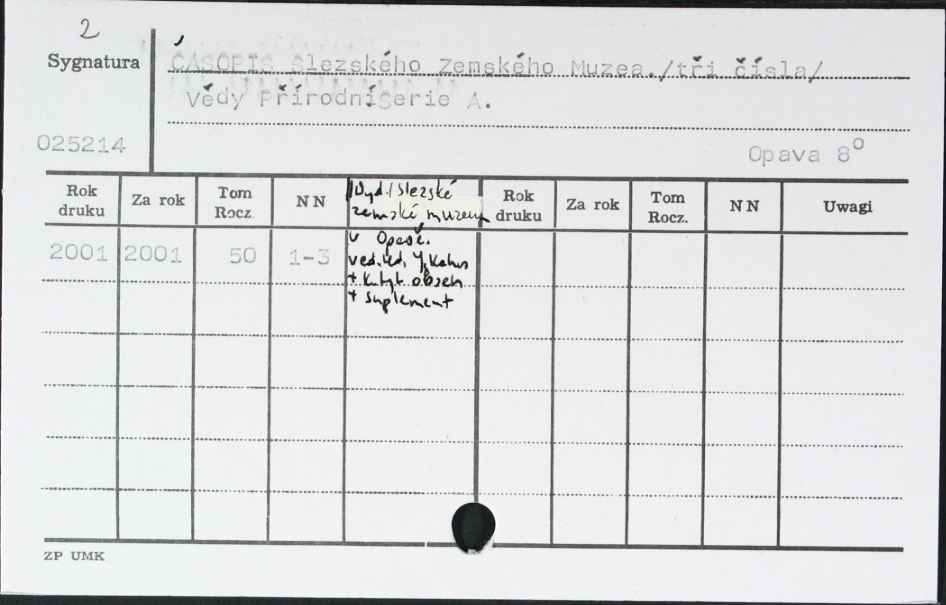 2
Sygnatura
ČASOPIS Slezského Zemského Muzea./tři čísla/
Vědy PřírodníSerie A.
025214
Opava 8°
Rok druku Za rok Tom Rocz. NN Wyd./Slezské Rok druku Za rok Tom Rocz. NN Uwagi
zemské muzeum
v Opavě.
2001 2001 50 1-3
ved.red. J.
+ obsah
+ Suplement
ZP UMK